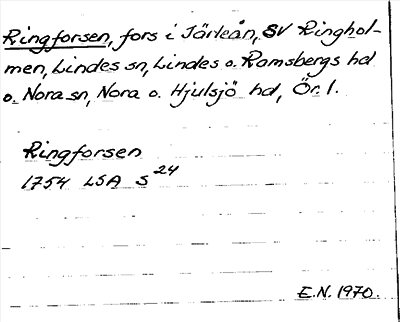 Ringforsen, fors i Järleån, SV Ringhol-
men, Lindes sn, Lindes o. Ramsbergs hd
o. Nora sn, Nora o. Hjulsjö hd, Ör. l.
Ringforsen
1754 LSA S 24
E.N. 1970.